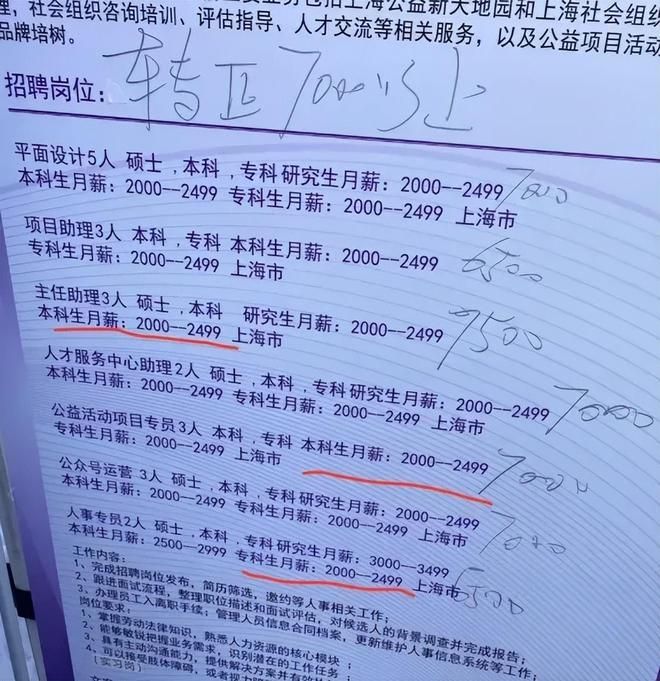 理，社会组织咨询培训、评估指导、人才交流等相关服务，以及公益项目活动
品牌培树。
招聘岗位：转正7000以上
平面设计5人 硕士，本科，专科研究生月薪：2000--2499 7000
本科生月薪：2000--2499 专科生月薪：2000--2499 上海市
项目助理3人 本科，专科 本科生月薪：2000--2499 6500
专科生月薪：2000--2499 上海市
主任助理3人 硕士，本科 研究生月薪：2000--2499 7500
本科生月薪：2000--2499 上海市
人才服务中心助理2人 硕士，本科，专科研究生月薪：2000--2499 7000
本科生月薪：2000--2499 专科生月薪：2000--2499 上海市
公益活动项目专员3人 本科，专科 本科生月薪：2000--2499 7000
专科生月薪：2000--2499 上海市
公众号运营 3人 硕士，本科，专科研究生月薪：2000--2499 7000
本科生月薪：2000--2499 专科生月薪：2000--2499 上海市
人事专员2人 硕士，本科，专科研究生月薪：3000--3499
本科生月薪：2500--2999 专科生月薪：2000--2499 上海市 6500
工作内容：
1、完成招聘岗位发布，简历筛选，邀约等人事相关工作；
2、跟进面试流程，整理职位描述和面试评估，对候选人的背景调查并完成报告；
3、办理员工入离职手续；管理人员信息合同档案，更新维护人事信息系统等工作；
岗位要求：
1、掌握劳动法律知识，熟悉人力资源的核心模块；
2、能够敏锐把握业务需求，识别潜在的工作任务；
3、具有主动沟通能力，提供解决方案并有效
4、可以接受肢体障碍，或者视力障
（实习岗）